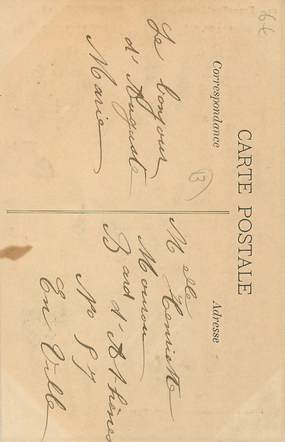 CARTE POSTALE
Correspondance
Le bonjour
d'Auguste
Marie
13
Adresse
Melle Henriette
Bard d'Athènes
No 57
En Ville